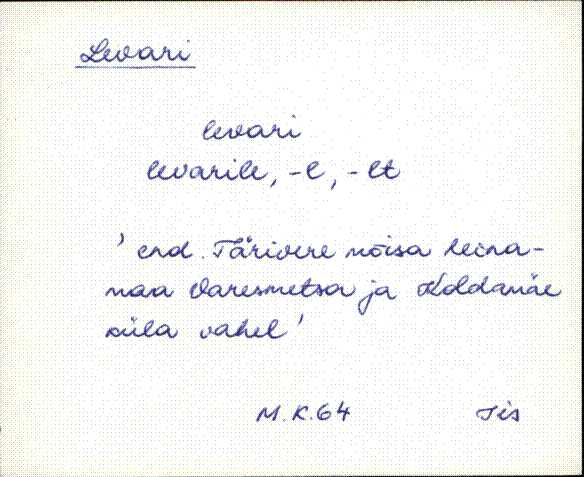 Levari
levari
levarile, -l, -lt
' end. Tärivere mõisa heina-
maa Varesmetsa ja Koldamäe
küla vahel '
M. K. 64 Iis